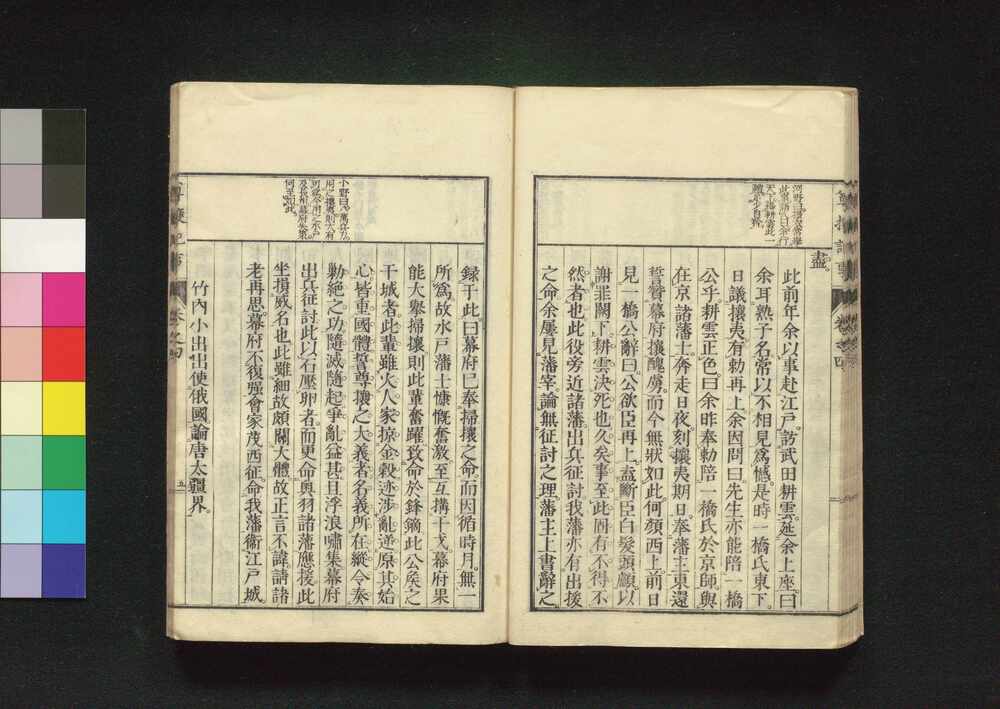 盡。
此前年余以事赴江戶。訪武田耕雲。延余上座。曰
余耳熟子名。常以不相見爲憾。是時一橋氏東下。
日議攘夷。有勅再上。余因問曰。先生亦能陪一橋
公乎。耕雲正色曰。余昨奉勅陪一橋氏於京師。與
在京諸藩士。奔走日夜。刻攘夷期日。奉藩主東還
誓贊幕府攘醜虜。而今無狀如此。何顏西上。前日
見一橋公。辭曰。公欲臣再上。盍斷臣白髮頭顱以
謝罪闕下。耕雲決死也久矣。事至此。固有不得不
然者也。此役旁近諸藩。出兵征討。我藩亦有出援
之命。余屢見藩宰。論無征討之理。藩主上書辭之。
錄于此。曰幕府已奉掃攘之命。而因循時月。無一
所爲。故水戶藩士慷慨奮激。至互搆干戈。幕府果
能大擧掃攘。則此輩奮躍。致命於鋒鏑。此公矦之
干城者。此輩雖火人家。掠金穀。迹涉亂逆。原其始
心。皆重國體。誓尊攘之大義者。名義所在。縱令奏
勦絕之功。隨滅隨起。爭亂益甚。且浮浪嘯集。幕府
出兵征討。此以石壓卵者。而更命奧羽諸藩應援。此
坐損威名也。此雖細故。頗關大體。故正言不諱。請諸
老再思。幕府不復强。會家茂西征。命我藩衞江戶城。
竹內小出出使俄國。論唐太疆界。
五